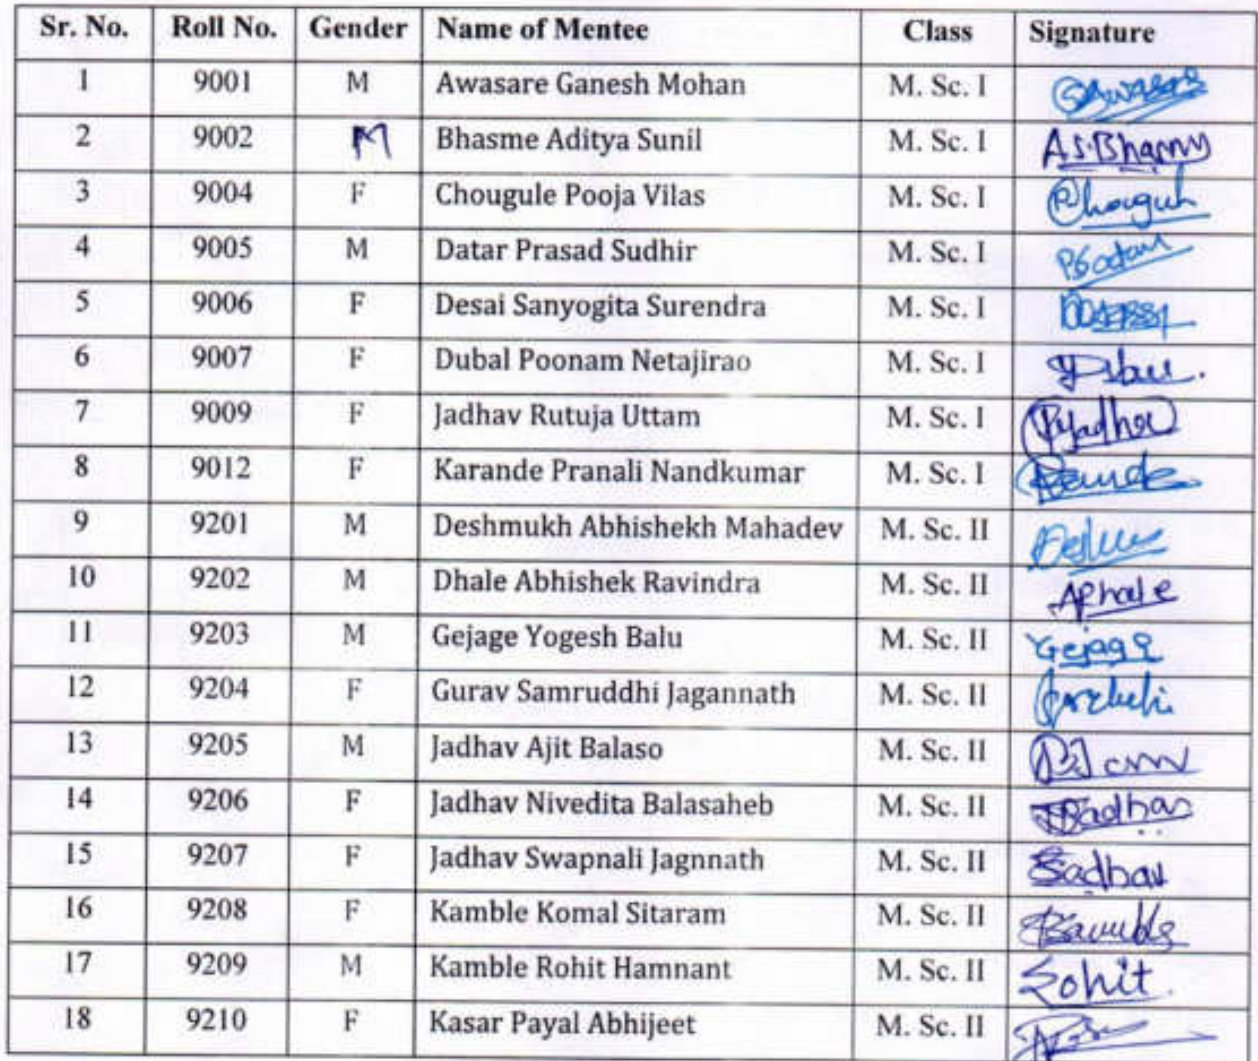 Sr. No. Roll No. Gender Name of Mentee Class Signature
1 9001 M Awasare Ganesh Mohan M. Sc. I GAwasare
2 9002 M Bhasme Aditya Sunil M. Sc. I
3 9004 F Chougule Pooja Vilas M. Sc. I
4 9005 M Datar Prasad Sudhir M. Sc. I
5 9006 F Desai Sanyogita Surendra M. Sc. I
6 9007 F Dubal Poonam Netajirao M. Sc. I
7 9009 F Jadhav Rutuja Uttam M. Sc. I
8 9012 F Karande Pranali Nandkumar M. Sc. I
9 9201 M Deshmukh Abhishekh Mahadev M. Sc. II
10 9202 M Dhale Abhishek Ravindra M. Sc. II
11 9203 M Gejage Yogesh Balu M. Sc. II Gejage
12 9204 F Gurav Samruddhi Jagannath M. Sc. II
13 9205 M Jadhav Ajit Balaso M. Sc. II
14 9206 F Jadhav Nivedita Balasaheb M. Sc. II
15 9207 F Jadhav Swapnali Jagnnath M. Sc. II
16 9208 F Kamble Komal Sitaram M. Sc. II
17 9209 M Kamble Rohit Hamnant M. Sc. II Rohit
18 9210 F Kasar Payal Abhijeet M. Sc. II